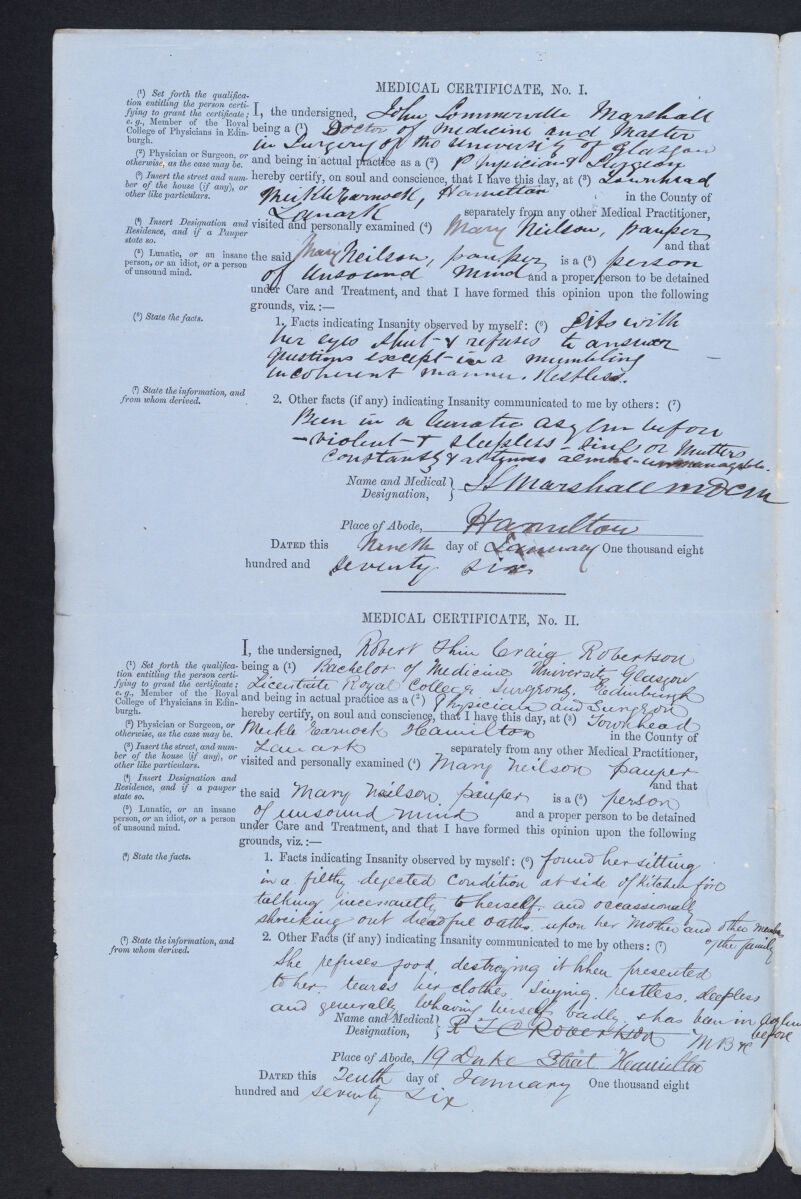 MEDICAL CERTIFICATE, No. I.
(¹) Set forth the qualifica-
tion entitling the person certi-
fying to grant the certificate;
e.g., Member of the Royal
College of Physicians in Edin-
burgh.
(²) Physician or Surgeon, or
otherwise, as the case may be.
(³) Insert the street and num-
ber of the house (if any), or
other like particulars.
(⁴) Insert Designation and
Residence, and if a Pauper
state so.
(⁵) Lunatic, or an insane
person, or an idiot, or a person
of unsound mind.
I, the undersigned, John Sommerville Marshall
being a (¹) Doctor of Medicine and Master
in Surgery of the University of Glasgow
and being in actual practice as a (²) Physician & Surgeon
hereby certify, on soul and conscience, that I have this day, at (³) Townhead
Meikle Earnock, Hamilton in the County of
Lanark separately from any other Medical Practitioner,
visited and personally examined (⁴) Mary Neilson, pauper
and that
the said Mary Neilson, pauper is a (⁵) person
of Unsound Mind and a proper person to be detained
under Care and Treatment, and that I have formed this opinion upon the following
grounds, viz.:—
(⁶) State the facts.
1. Facts indicating Insanity observed by myself: (⁶) Sits with
her eyes shut & refuses to answer
questions except in a mumbling
incoherent manner. Restless.
(⁷) State the information, and
from whom derived.
2. Other facts (if any) indicating Insanity communicated to me by others: (⁷)
Been in a lunatic asylum before
– violent & sleepless – sings or mutters
constantly & at times almost unmanageable.
Name and Medical
Designation, } JS Marshall MD CM
Place of Abode, Hamilton
DATED this Nineth day of January One thousand eight
hundred and seventy six
MEDICAL CERTIFICATE, No. II.
(¹) Set forth the qualifica-
tion entitling the person certi-
fying to grant the certificate;
e.g., Member of the Royal
College of Physicians in Edin-
burgh.
(²) Physician or Surgeon, or
otherwise, as the case may be.
(³) Insert the street, and num-
ber of the house (if any), or
other like particulars.
(⁴) Insert Designation and
Residence, and if a pauper
state so.
(⁵) Lunatic, or an insane
person, or an idiot, or a person
of unsound mind.
I, the undersigned, Robert Craig Robertson
being a (¹) Bachelor of Medicine University Glasgow
Licentiate Royal College Surgeons, Edinburgh
and being in actual practice as a (²) Physician and Surgeon
hereby certify, on soul and conscience, that I have this day, at (³) Townhead
Meikle Earnock Hamilton in the County of
Lanark separately from any other Medical Practitioner,
visited and personally examined (⁴) Mary Neilson pauper
and that
the said Mary Neilson, pauper is a (⁵) person
of unsound mind and a proper person to be detained
under Care and Treatment, and that I have formed this opinion upon the following
grounds, viz.:—
(⁶) State the facts.
1. Facts indicating Insanity observed by myself: (⁶) found her sitting
in a filthy dejected condition at side of kitchen fire
talking incessantly to herself and occassionally
shrieking out dreadful oaths upon her Mother and other members
of the family
(⁷) State the information, and
from whom derived.
2. Other Facts (if any) indicating Insanity communicated to me by others: (⁷)
She refuses food, destroying it when presented
to her. tears her clothes. Singing. restless. sleepless
and generally behaving herself badly. & has been in Asylum
before
Name and Medical
Designation, } R C Robertson MB &c
Place of Abode, 19 Duke Street Hamilton
DATED this Tenth day of January One thousand eight
hundred and seventy six